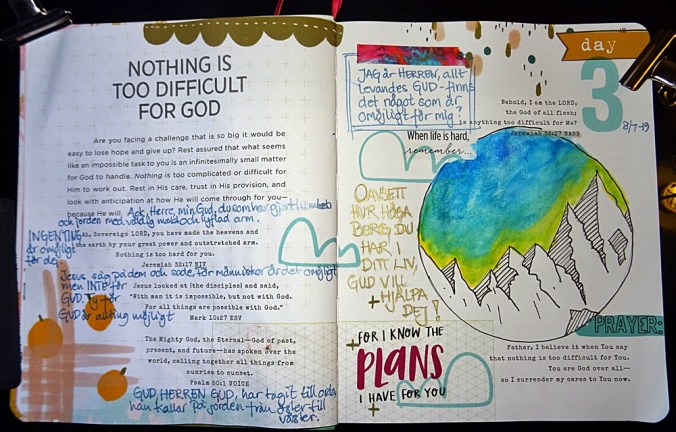 NOTHING IS
TOO DIFFICULT
FOR GOD
Are you facing a challenge that is so big it would be
easy to lose hope and give up? Rest assured that what seems
like an impossible task to you is an infinitesimally small matter
for God to handle. Nothing is too complicated or difficult for
Him to work out. Rest in His care, trust in His provision, and
look with anticipation to how He will come through for you—
because He will.
Ack, Herre, min Gud, du som har gjort himmel
och jorden med väldig makt och lyftad arm.
INGENTING
är omöjligt
för dig
Ah, Sovereign LORD, you have made the heavens and
the earth by your great power and outstretched arm.
Nothing is too hard for you.
Jeremiah 32:17 NIV
Jesus såg på dem och sade för människor är det omöjligt
men INTE för
GUD, ty för
GUD är allting möjligt
Jesus looked at (the disciples) and said,
"With man it is impossible, but not with God.
For all things are possible with God."
Mark 10:27 ESV
The Mighty God, the Eternal—God of past,
present, and future—has spoken over the
world, calling together all things from
sunrise to sunset.
Psalm 50:1 VOICE
GUD, HERREN GUD, har tagit till orda
han kallar på jorden från öster till
väster.
JAG är HERREN, allt
levandes GUD - finns
det något som är
omöjligt för mig?
When life is hard,
remember...
day
3
8/7-19
Behold, I am the LORD,
the God of all flesh;
is anything too difficult for Me?
Jeremiah 32:27 NASB
OAVSETT
HUR HÖGA
BERG DU
HAR I
DITT LIV,
GUD VILL
HJÄLPA
DEJ!
FOR I KNOW THE
PLANS
I HAVE FOR YOU
PRAYER:
Father, I believe it when You say
that nothing is too difficult for You.
You are God over all—
so I surrender my cares to You now.